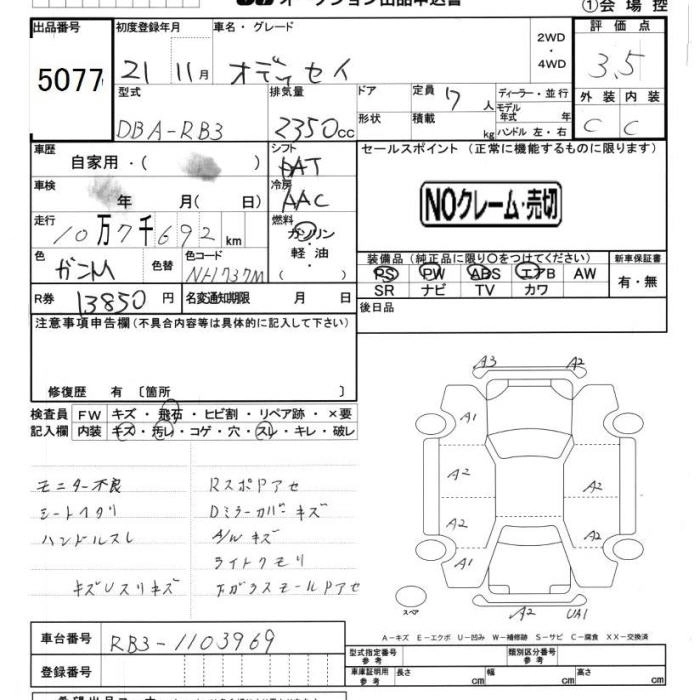 オークション出品申込書
①会場控
出品番号 初度登録年月 車名・グレード 2WD・4WD 評価点
5077 21 11月 オデッセイ 3.5
型式 排気量 ドア 定員 7人 ディーラー・並行 外装 内装
DBA-RB3 2350cc 形状 積載 kg モデル年式 年 ハンドル 左・右 C C
車歴 シフト セールスポイント (正常に機能するものに限ります)
自家用・( ) AT
車検 冷房
年 月( 日) AAC NOクレーム・売切
走行 燃料
10万7千692km ガソリン
軽油
( )
色 色替 色コード
NH737M
装備品 (純正品に限り○をつけてください) 新車保証書
PS PW ABS エアB AW 有・無
SR ナビ TV カワ
R券 13850円 名変通知期限 月 日 後日品
注意事項申告欄(不具合内容等は具体的に記入して下さい)
修復歴 有 〔箇所 〕
検査員 FW キズ・飛石・ヒビ割・リペア跡・×要
記入欄 内装 キズ・汚レ・コゲ・穴・スレ・キレ・破レ
A3 A2
A1
A2 A2
A2 A2
A1
A2 UA1
スペア
モニター不良 RスポPアセ
シートヘタリ Dミラーカバーキズ
ハンドルスレ A/Wキズ
ライトクモリ
キズUスリキズ
A-キズ E-エクボ U-凹み W-補修跡 S-サビ C-腐食 XX-交換済
車台番号 RB3-1103969
型式指定番号 参考 類別区分番号 参考
登録番号 車庫証明用 参考 長さ cm 幅 cm 高さ cm